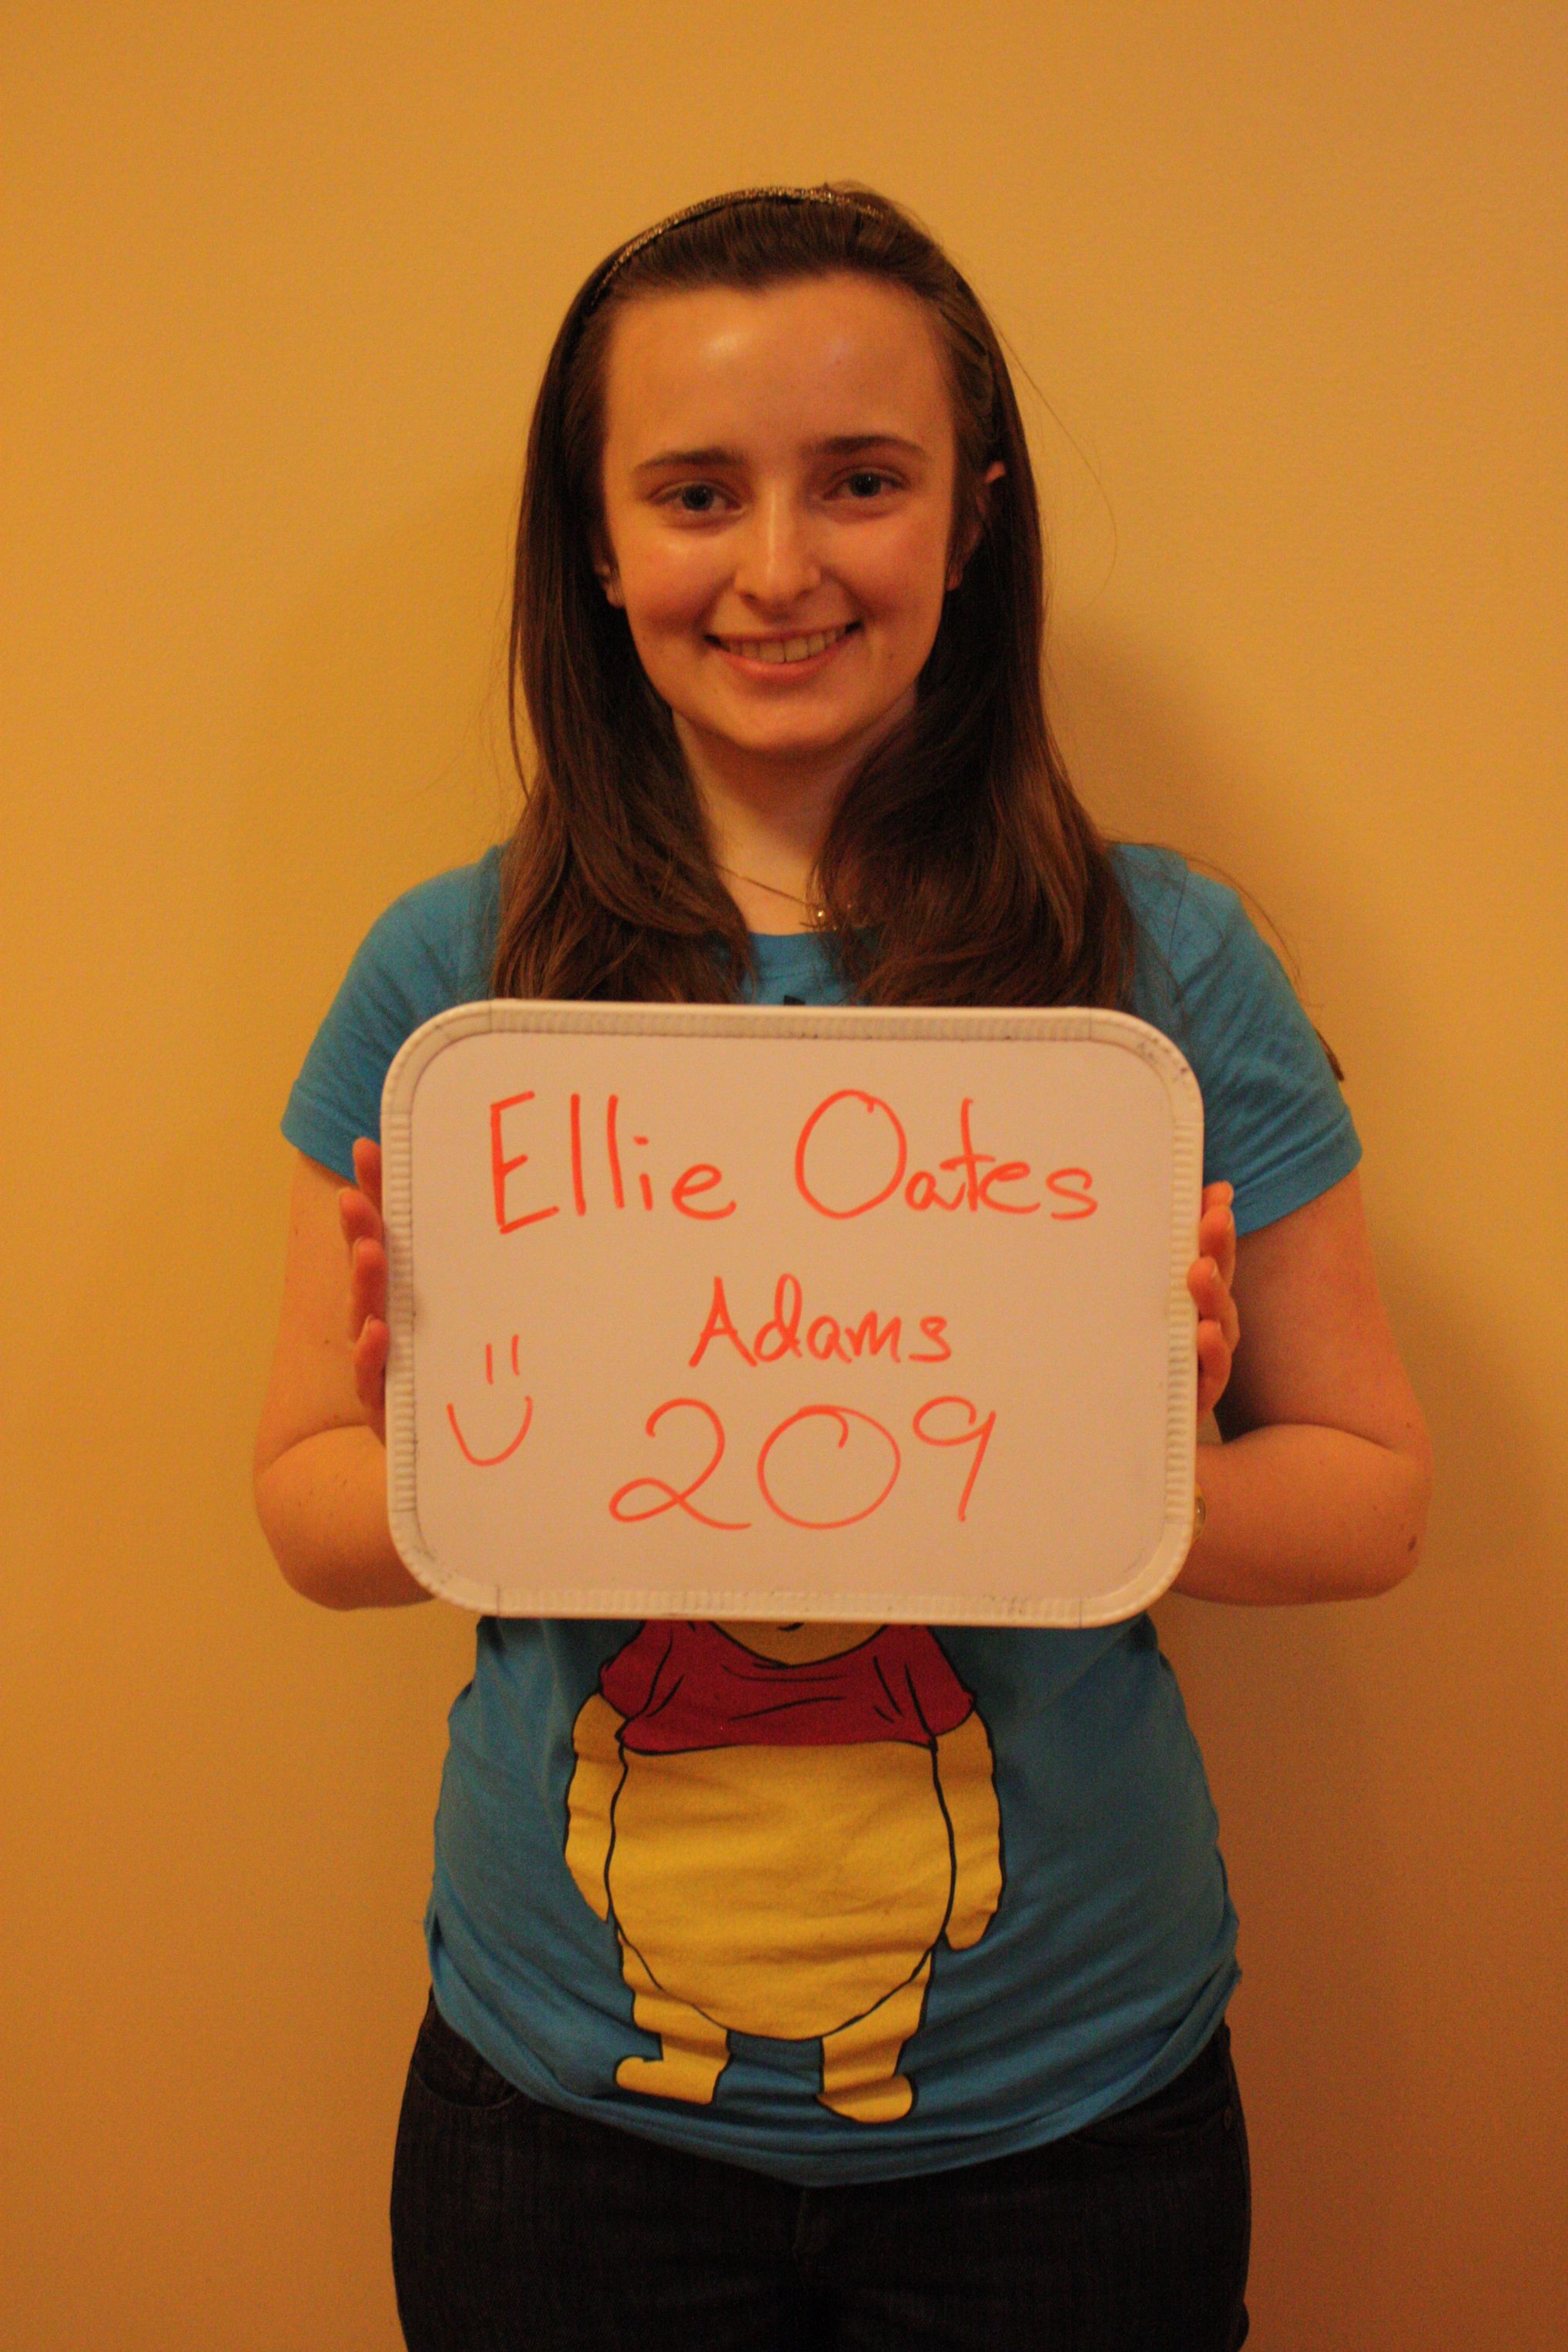 Ellie Oates
Adams
209